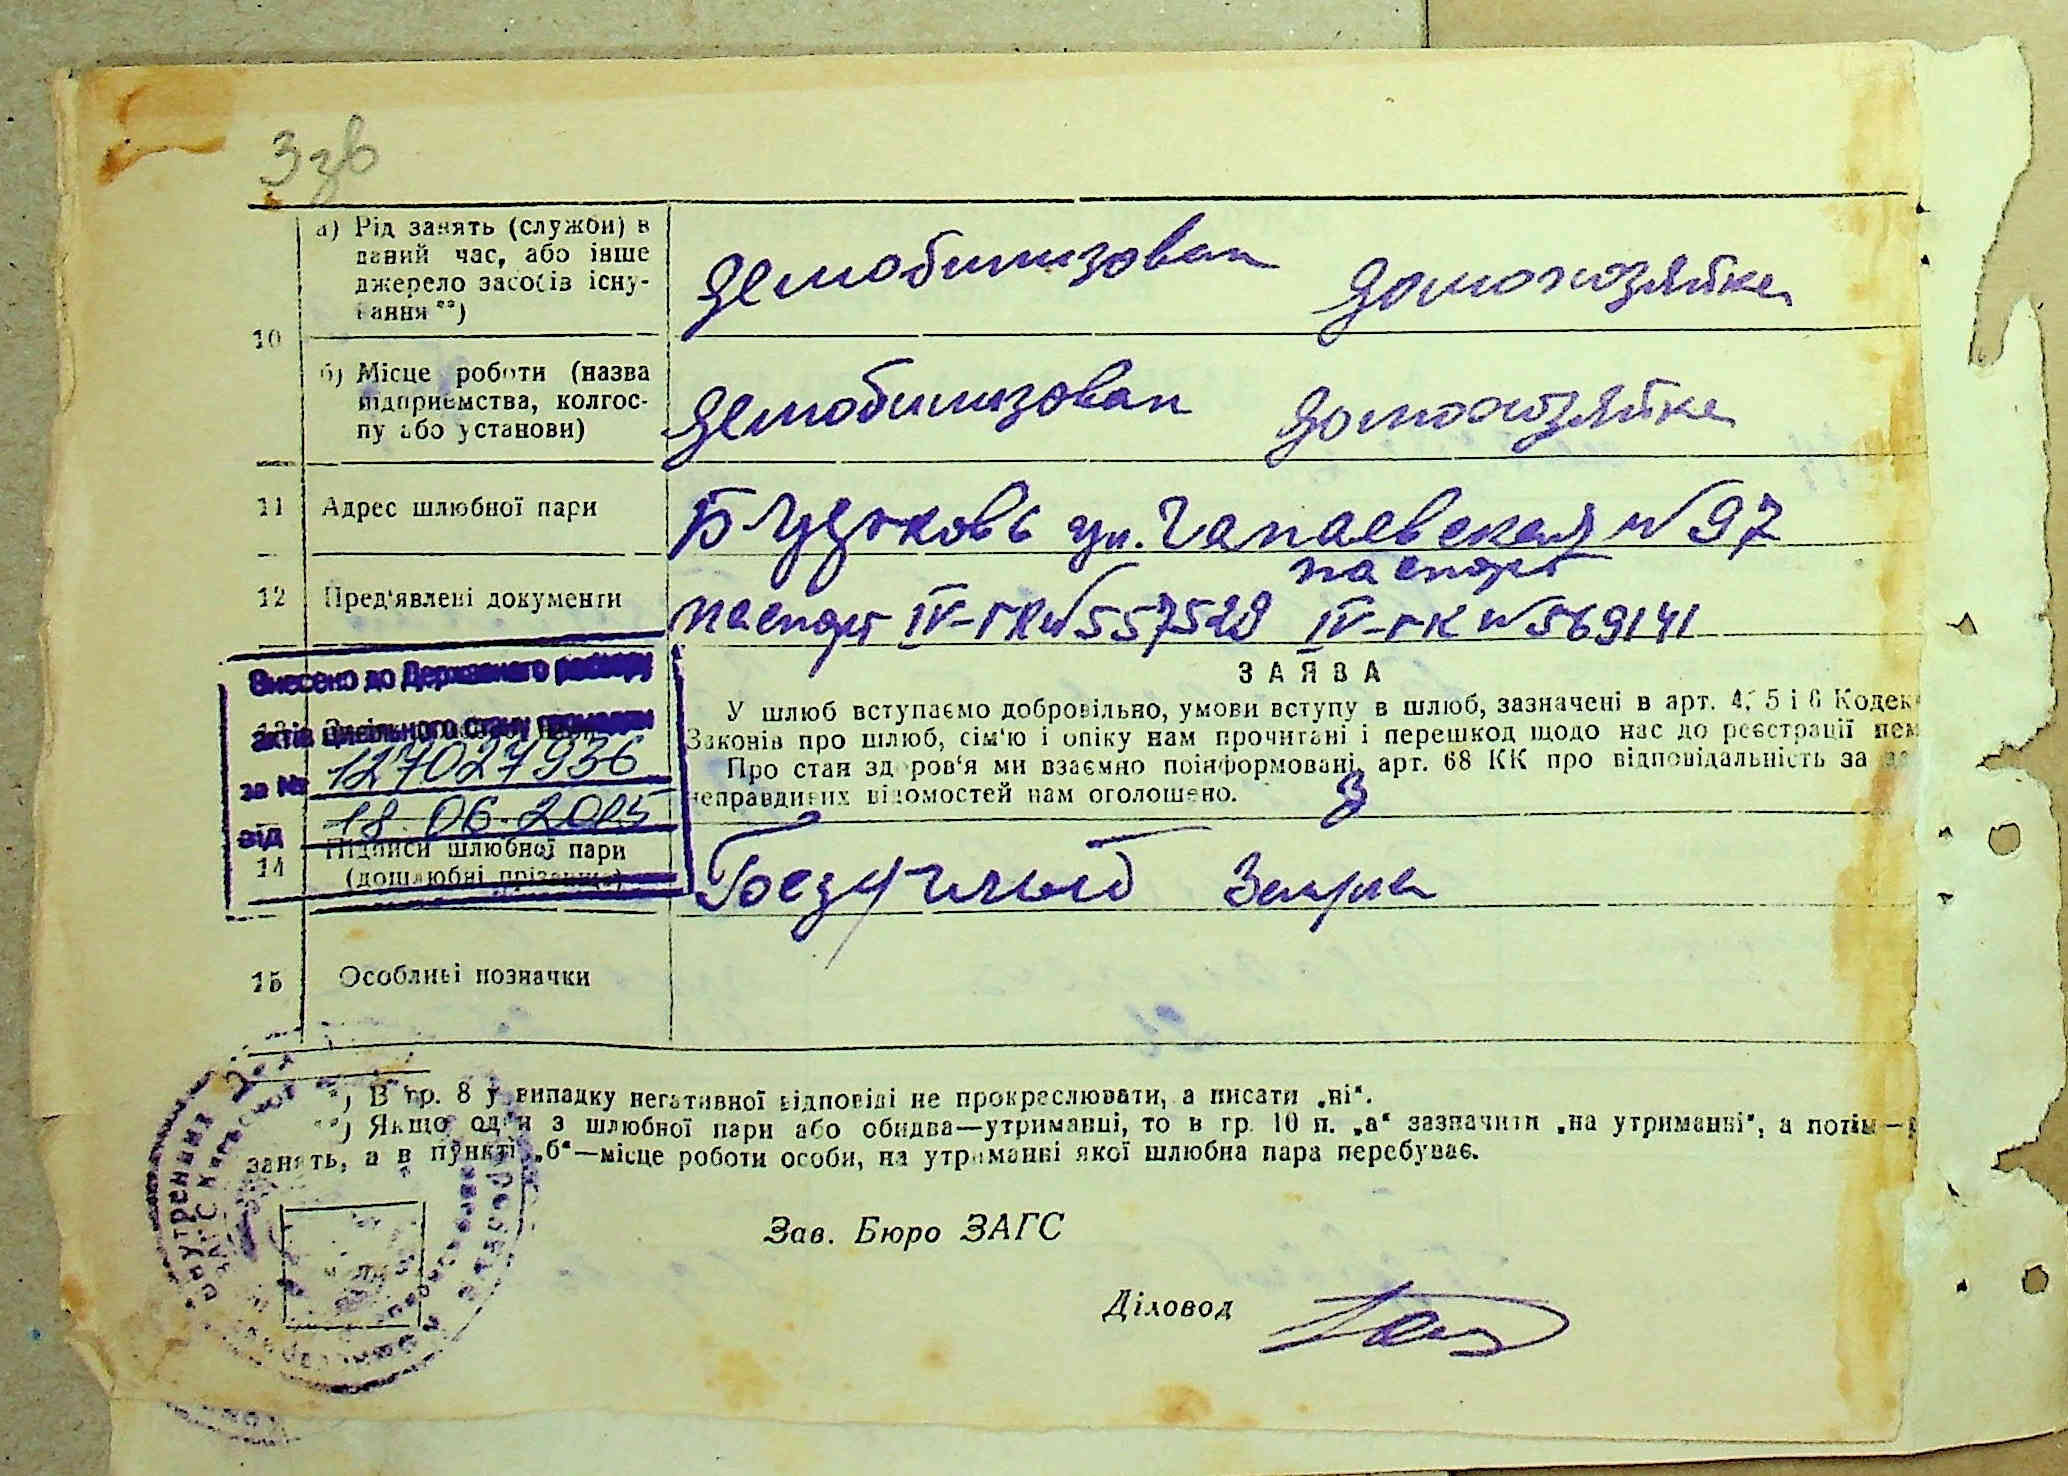 а) Рід занять (служби) в
даний час, або інше
джерело засобів існу-
вання **)
демобилизован домохозяйка
10
б) Місце роботи (назва
підприємства, колгос-
пу або установи)
демобилизован домохозяйка
11 Адрес шлюбної пари
ул. Чапаевская №97
12 Пред'явлені документи
паспорт
паспорт IV-ГК № 557528 IV-ГК № 569141
Внесено до Державного реєстру
актів цивільного стану громадян
за № 127027936
від 18.06.2025
ЗАЯВА
У шлюб вступаємо добровільно, умови вступу в шлюб, зазначені в арт. 4, 5 і 6 Кодек
Законів про шлюб, сім'ю і опіку нам прочитані і перешкод щодо нас до реєстрації нем
Про стан здоров'я ми взаємно поінформовані, арт. 68 КК про відповідальність за
неправдивих відомостей нам оголошено.
14 Підписи шлюбної пари
(дошлюбні прізвища)
15 Особливі позначки
*) В гр. 8 у випадку негативної відповіді не прокреслювати, а писати „ні“.
**) Якщо один з шлюбної пари або обидва—утриманці, то в гр. 10 п. „а“ зазначити „на утриманні“, а потім—р
занять, а в пункті „б“—місце роботи особи, на утриманні якої шлюбна пара перебуває.
Зав. Бюро ЗАГС
Діловод